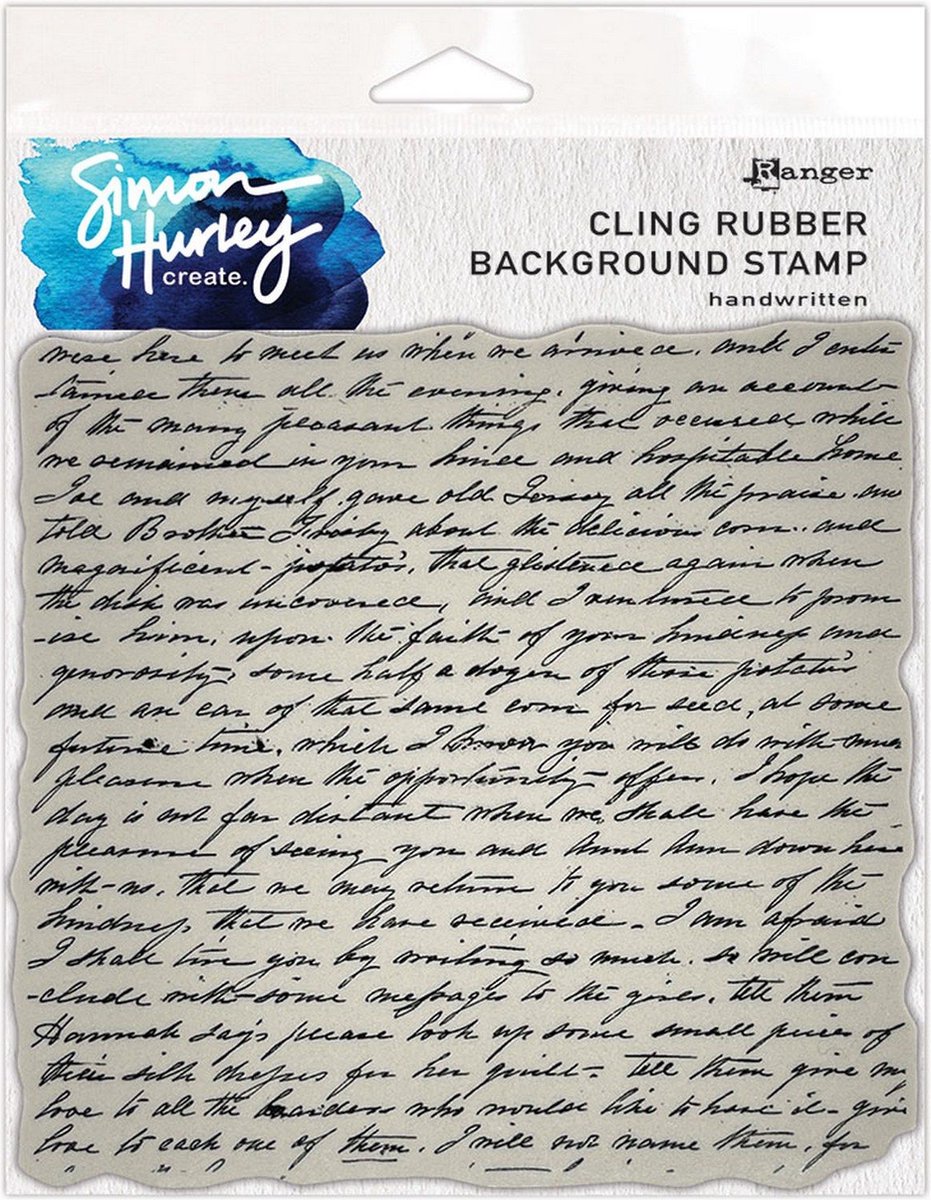 Simon
Hurley
create.
Ranger
CLING RUBBER
BACKGROUND STAMP
handwritten
were here to meet us when we arrived. and I enter
-tained them all the evening, giving an account
of the many pleasant things that occured while
we remained in your kind and hospitable home
Joe and myself gave old Jersey all the praise. and
told Brother about the delicious corn. and
magnificent potato's, that glistened again when
the dish was uncovered, and I ventured to prom
-ise him, upon the faith of your kindness and
generosity, some half a dozen of those potato's
and an ear of that same corn for seed, at some
future time, which I know you will do with much
pleasure when the opportunity offers. I hope the
day is not far distant when we, shall have the
pleasure of seeing you and Aunt Ann down here
with us, that we may return to you some of the
kindness that we have received - I am afraid
I shall tire you by writing so much. so will con
-clude with some messages to the girls, tell them
Hannah says please look up some small pieces of
their silk dresses for her quilt - tell them give my
love to all the who would like to have it - give
love to each one of them. I will not name them, for